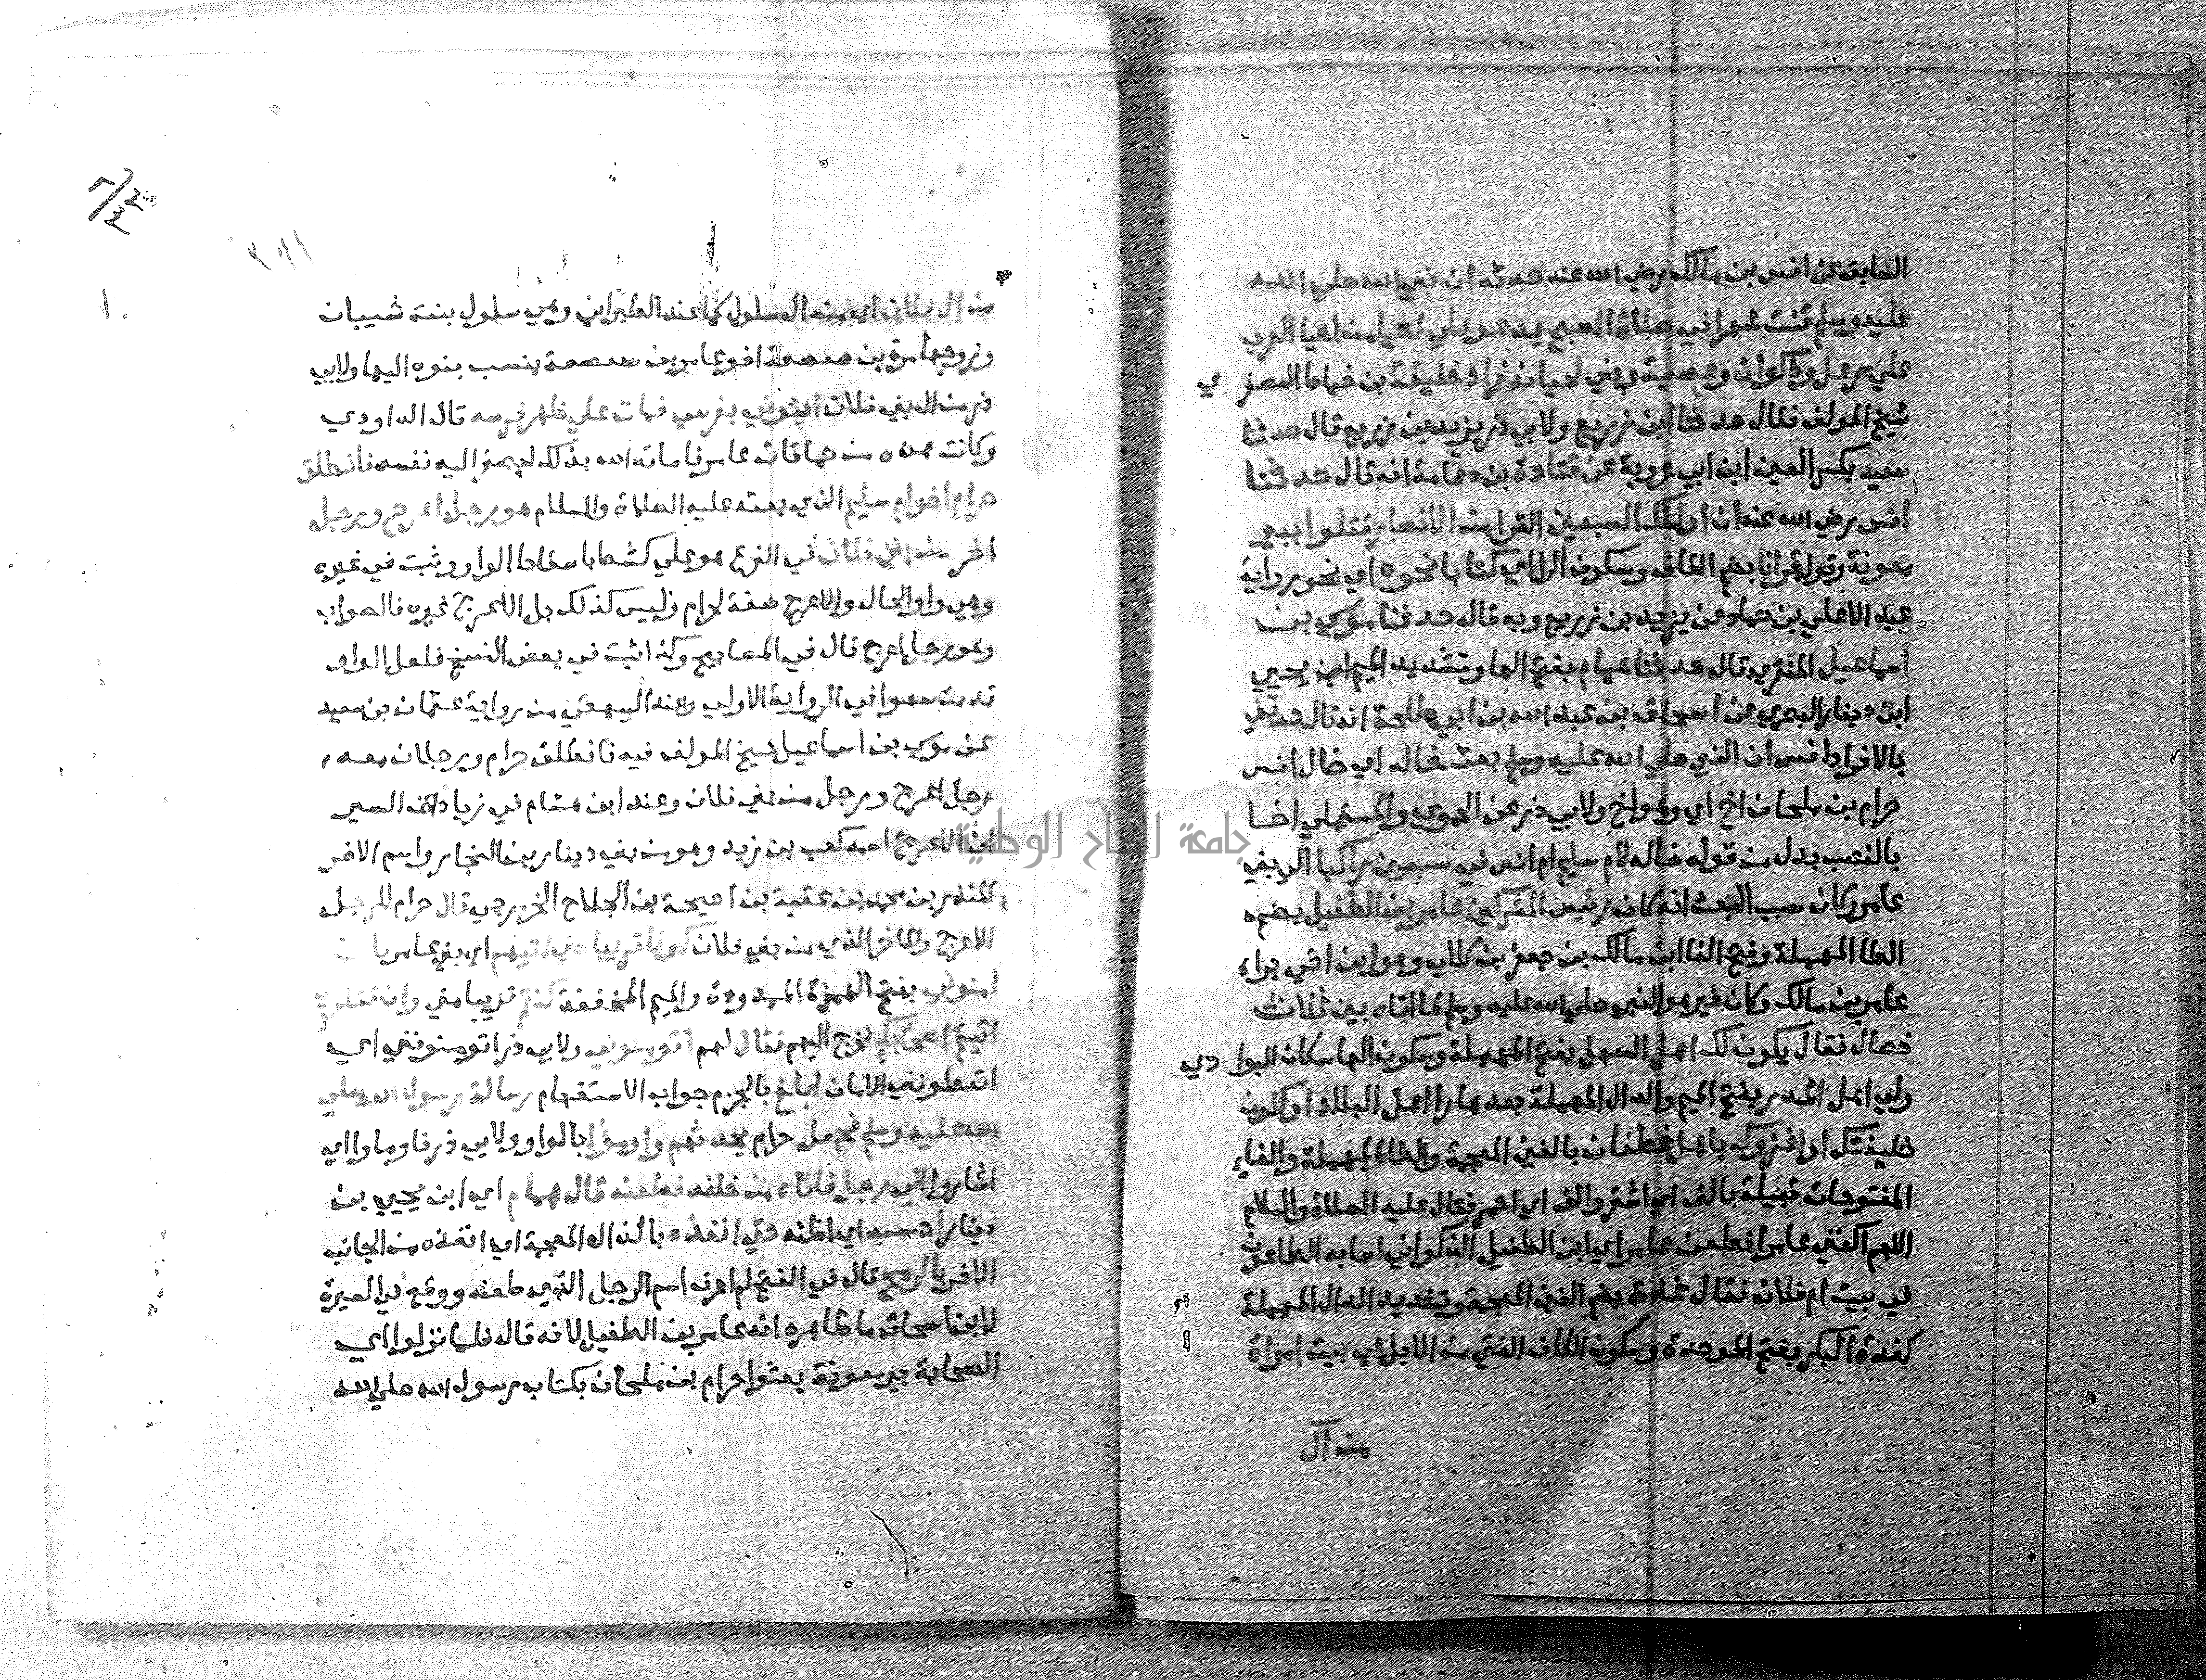 السابق عن انس بن مالك رضي الله عنه حدثه ان نبي الله صلي الله
عليه وسلم قنت شهرا في صلاة الصبح يدعو علي احيا من احيا العرب
علي رعل وذكوان وعصية وبني لحيان زاد خليفة بن خياط العصفري
شيخ المولف فقال حدثنا ابن زريع ولابي ذر يزيد بن زريع قال حدثنا
سعيد بكسر العين ابن ابي عروبة عن قتادة بن دعامة انه قال حدثنا
انس رضي الله عنه ان اوليك السبعين القرا من الانصار قتلوا ببير
معونة وقوله قرانا بضم القاف وسكون الراء اي كتابا نحوه اي نحو رواية
عبد الاعلي بن حماد عن يزيد بن زريع وبه قال حدثنا موسي بن
اسماعيل المنقري قال حدثنا همام بفتح الها وتشديد الميم ابن يحيي
ابن دينار البصري عن اسحاق بن عبد الله بن ابي طلحة انه قال حدثني
بالافراد انس ان النبي صلي الله عليه وسلم بعث خاله اي خال انس
حرام بن ملحان اخ اي وهو اخ ولابي ذر عن الحموي والمستملي اخا
بالنصب بدل من قوله خاله لام سليم ام انس في سبعين راكبا الي بني
عامر وكان سبب البعث انه كان رئيس المشركين عامر بن الطفيل بضم
الطا المهملة وفتح الفا ابن مالك بن جعفر بن كلاب وهو ابن اخي براء
عامر بن مالك وكان خير هو النبي صلي الله عليه وسلم لما اتاه بين ثلاث
خصال فقال يكون لك اهل السهل بفتح المهملة وسكون الها سكان البوادي
ولي اهل المدر بفتح الميم والدال المهملة بعدها را اهل البلاد او اكون
خليفتك او اغزوك باهل غطفان بالغين المعجمة والطا المهملة والفاء
المفتوحات قبيلة بالف اي اشقر والف اي اشقر فقال عليه الصلاة والسلام
اللهم اكفني عامرا فطعن عامر اي ابن الطفيل الذكواني اصابه الطاعون
في بيت ام فلان فقال غدة بضم الغين المعجمة وتشديد الدال المهملة
كغدة البكر بفتح الموحدة وسكون الكاف الفتي من الابل في بيت امراة
من آل
من ال فلان اي من ال سلول كما عند الطبراني وهي سلول بنت شيبان
وزوجها مرة بن صعصعة اخو عامر بن صعصعة ينسب بنوه اليها ولابي
ذر من ال بني فلان ايتوني بفرسي فمات علي ظهر فرسه قال الداودي
وكانت هذه من حماقات عامر فاماته الله بذلك ليصغر اليه نفسه فانطلق
حرام اخو ام سليم الذي بعثه عليه الصلاة والسلام هو رجل اعرج ورجل
اخر من بني فلان في الفرع هو علي كشط باسقاط الواو وثبت في غيره
وهي واو الحال والاعرج صفة لحرام وليس كذلك بل الاعرج غيره فالصواب
وهو ورجل اعرج قال في المصابيح وكذا ثبت في بعض النسخ فلعل الواو
قدمت سهوا في الرواية الاولي وعند البيهقي من رواية عثمان بن سعيد
عن موسي بن اسماعيل شيخ المولف فيه فانطلق حرام ورجلان معه
رجل اعرج ورجل من بني فلان وعند ابن هشام في زيادات السير
ان الاعرج اسمه كعب بن زيد وهو من بني دينار بن النجار واسم الاخر
المنذر بن محمد بن عقبة بن احيحة بن الجلاح الخزرجي قال حرام للرجل
الاعرج والاخر الذي من بني فلان كونا قريبا حتي اتيهم اي بني عامر
امنوني بفتح الهمزة الممدودة والميم المخففة كنتم قريبا مني وان قتلوني
اتيتم اصحابكم فخرج اليهم فقال لهم اتومنوني ولابي ذر اتومنونني اي
اتعطونني الامان ابلغ بالجزم جواب الاستفهام رسالة رسول الله صلي
الله عليه وسلم فجعل حرام يحدثهم واومؤا بالواو ولابي ذر فاوماوا اي
اشاروا الي رجل فاتاه من خلفه فطعنه قال همام اي ابن يحيي بن
دينار احسبه اي اظنه حتي انفذه بالذال المعجمة اي انفذه من الجانب
الاخر بالرمح قال في الفتح لم اعرف اسم الرجل الذي طعنه ووقع في السيرة
لابن اسحاق ما ظاهره انه عامر بن الطفيل لانه قال فلما نزلوا اي
الصحابة بير معونة بعثوا حرام بن ملحان بكتاب رسول الله صلي الله
جامعة النجاح الوطنية